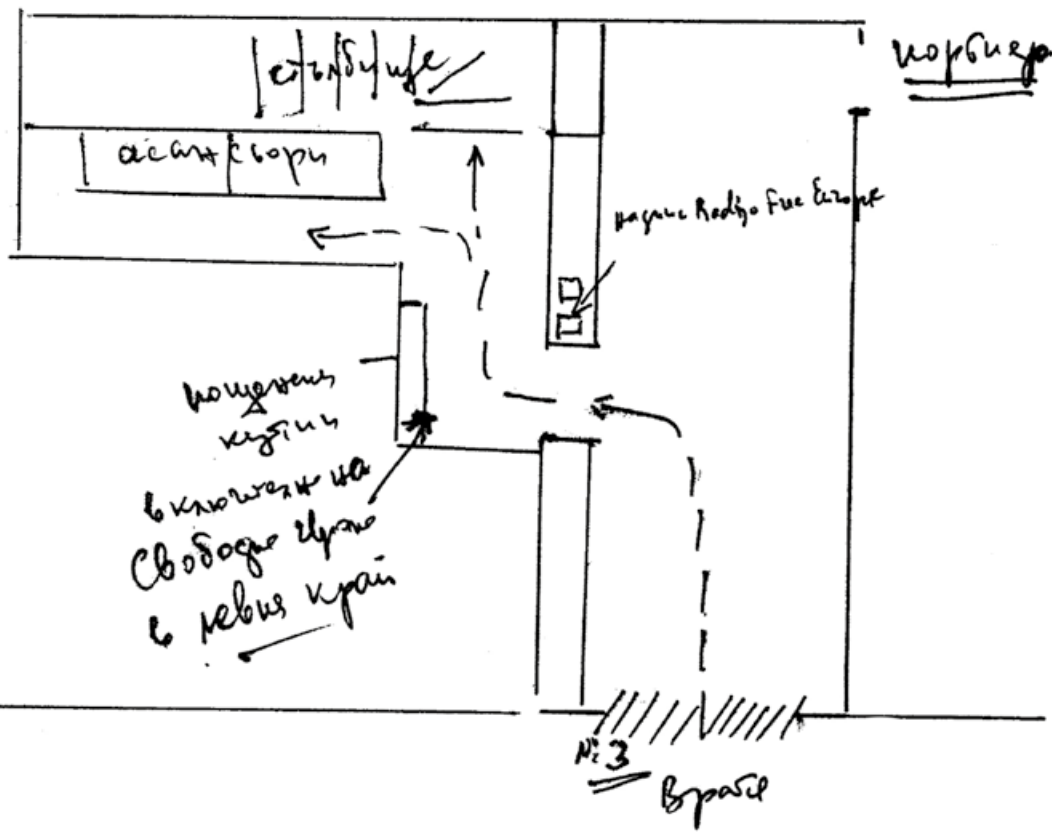 стълбище
портиер
асансьори
надпис Radio Free Europe
пощенски
кутии
включване на
Свободна Европа
в левия край
№ 3
Врата